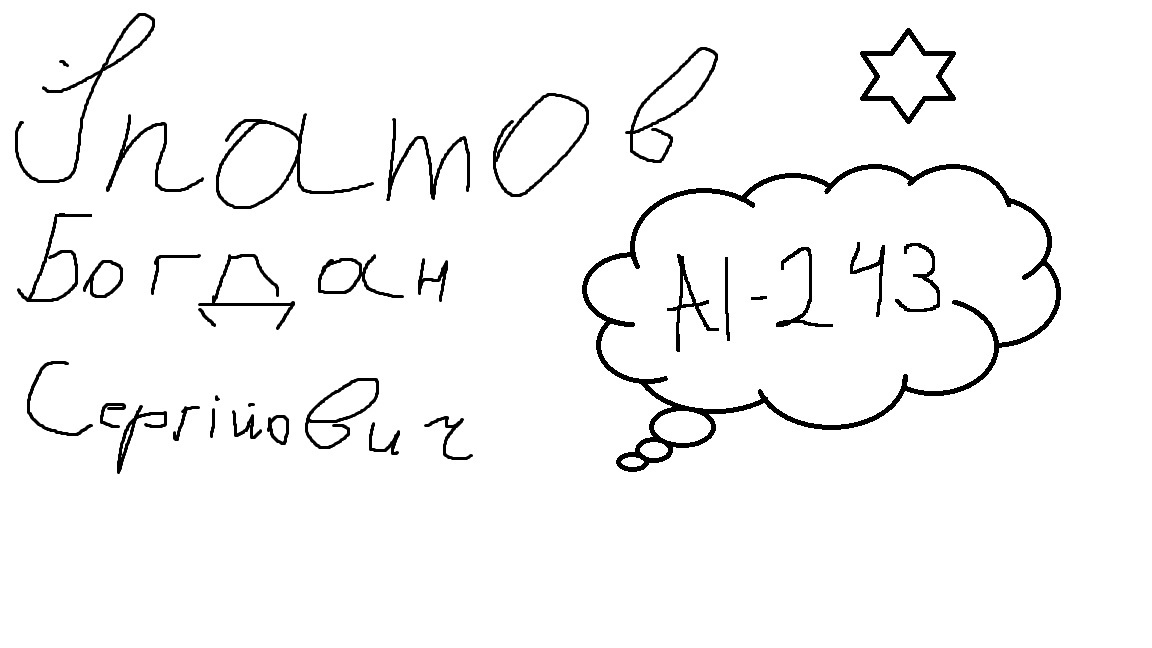 Іпатов
Богдан
Сергійович
АІ-243